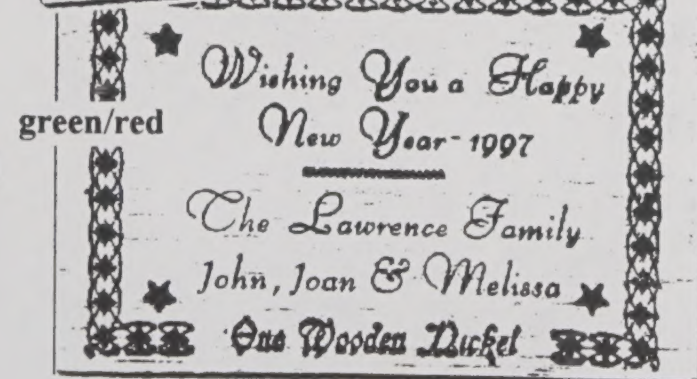 Wishing You a Happy
green/red
New Year - 1997
The Lawrence Family
John, Joan & Melissa
One Wooden Nickel